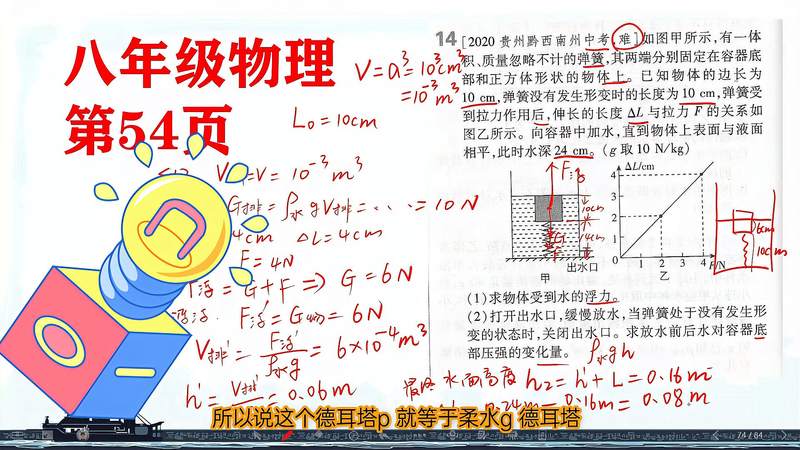 八年级物理
第54页
V=a³=10³cm³
=10⁻³m³
L₀=10cm
=V=10⁻³m³
G排=ρ水gV排=……=10N
4cm ΔL=4cm
F=4N
F浮=G+F⇒G=6N
F浮'=G物=6N
V排'=F浮'/ρ水g=6×10⁻⁴m³
h'=V排'/=0.06m
14 [2020贵州黔西南州中考,难]如图甲所示,有一体
积、质量忽略不计的弹簧,其两端分别固定在容器底
部和正方体形状的物体上。已知物体的边长为
10 cm,弹簧没有发生形变时的长度为10 cm,弹簧受
到拉力作用后,伸长的长度ΔL与拉力F的关系如
图乙所示。向容器中加水,直到物体上表面与液面
相平,此时水深24 cm。(g取10 N/kg)
F浮
10cm
14cm
G
F
出水口
甲
ΔL/cm
4
3
2
1
0 1 2 3 4 F/N
乙
6cm
10cm
(1)求物体受到水的浮力。
(2)打开出水口,缓慢放水,当弹簧处于没有发生形
变的状态时,关闭出水口。求放水前后水对容器底
部压强的变化量。
ρ水gh
水面高度 h₂=h'+L=0.16m
0.24m-0.16m=0.08m
所以说这个德耳塔p 就等于柔水g 德耳塔
74 / 84